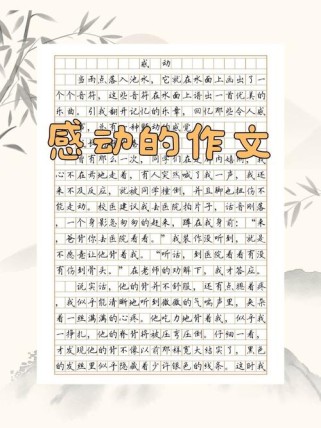 感 动
当雨点落入池水，它就在水面上画出了一
个个音符，这些音符在水面上谱出一首优美的
乐曲，引我翻开记忆的乐章，回忆那些令人感
感动的作文
曾有那么一次，同学们在
心不在焉地走着，有人突然喊了我一声，我还
来不及反应，就被同学撞倒，并且脚也挫伤不
能走动。校医建议我去医院拍片子，话音刚落
，一个身影急匆匆的赶来，蹲在我身前：“来
，爸背你去医院看看。”我装作没听到，就是
不愿意让他背着我。“听话，到医院看看有没
有伤到骨头。”在老师的劝解下，我才答应。
说实话，他的背并不舒服，还有点搭着疼，
我似乎能清晰地听到微微的气喘声里，夹杂
着一丝满满的心疼。他吃力地背着我，似乎我
一挣扎，他的脊背将被压弯压倒。仔细一看，
才发现他的背不像以前那样宽大结实了，黑色
的发丝里似乎隐藏着少许银色的线条，这时我